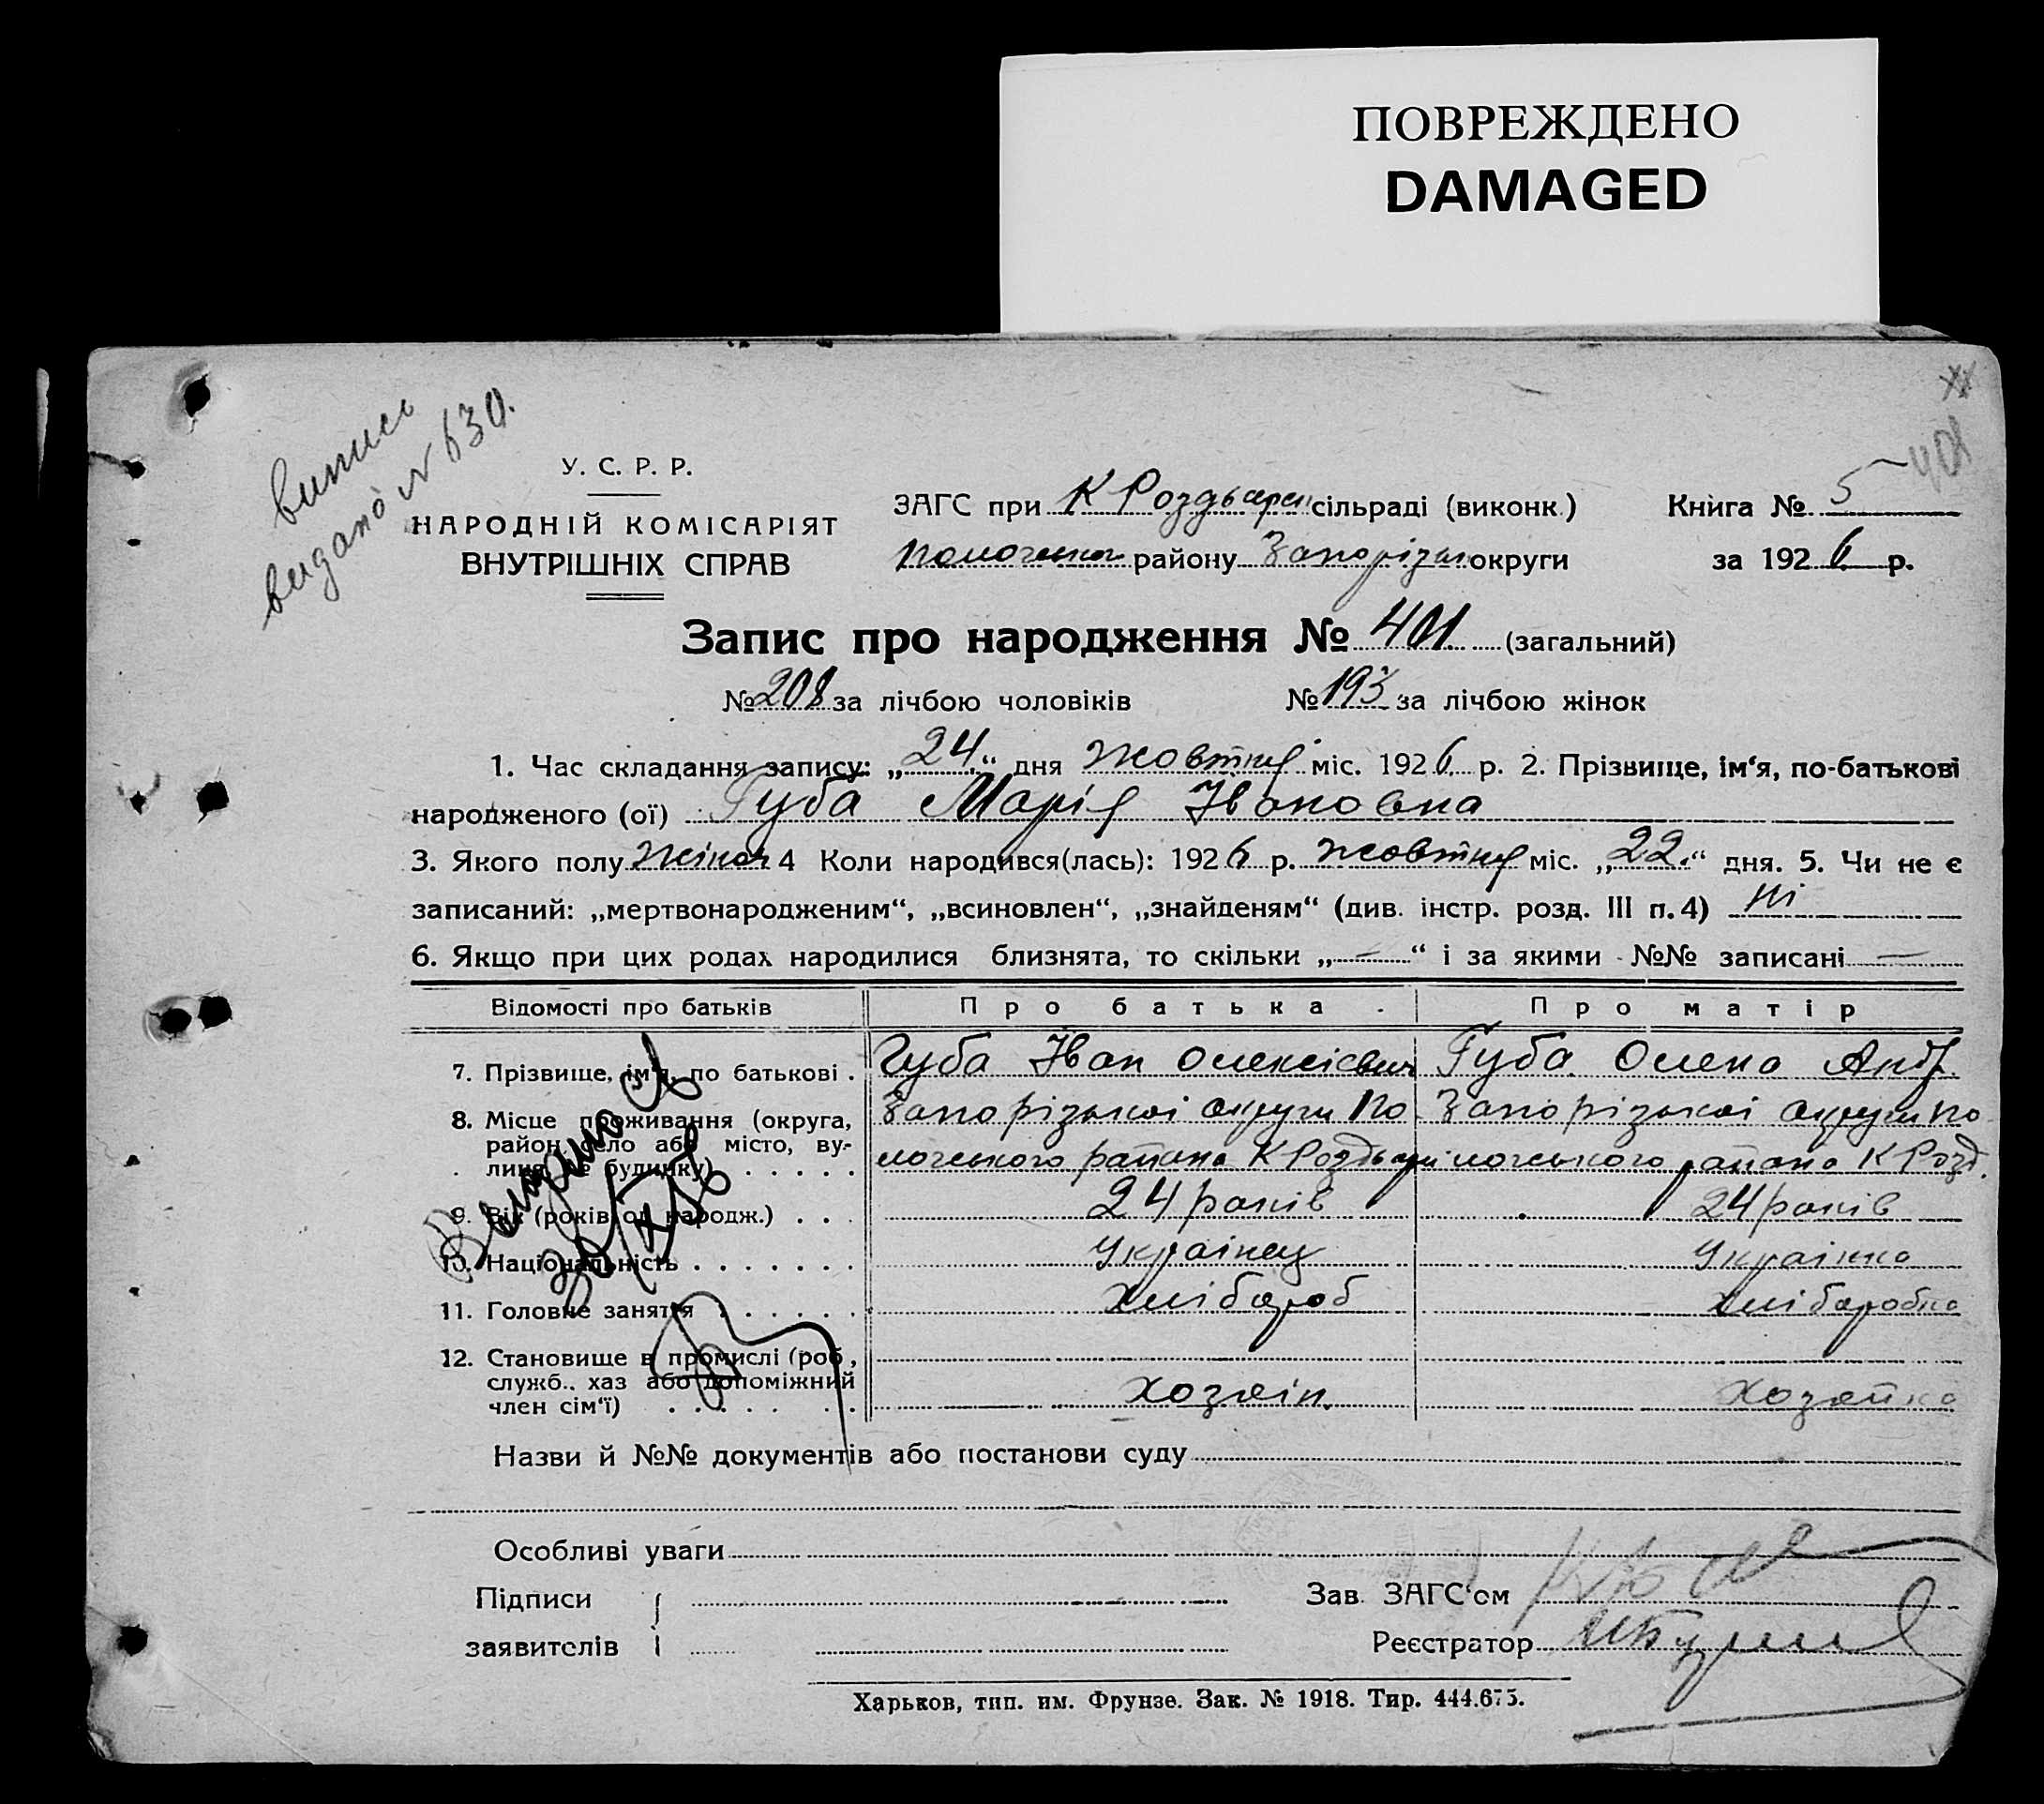 ПОВРЕЖДЕНО
DAMAGED
випись
видано № 630.
401
У. С. Р. Р.
НАРОДНІЙ КОМІСАРІЯТ
ВНУТРІШНІХ СПРАВ
ЗАГС при К Роздорськ сільраді (виконк.)
району Запорізьк округи
Книга № 5
за 1926 р.
Запис про народження № 401 (загальний)
№ 208 за лічбою чоловіків № 193 за лічбою жінок
1. Час складання запису: „24.“ дня жовтня міс. 1926 р. 2. Прізвище, ім‘я, по-батькові
народженого (ої) Губа Марія Івановна
3. Якого полу жіноч 4 Коли народився(лась): 1926 р. жовтня міс. „22.“ дня. 5. Чи не є
записаний: „мертвонародженим“, „всиновлен“, „знайденям“ (див. інстр. розд. III п. 4) ні
6. Якщо при цих родах народилися близнята, то скільки „—“ і за якими №№ записані —
Відомості про батьків Про батька Про матір
7. Прізвище, ім‘я, по батькові . Губа Іван Олексієвич Губа Олена Андр.
8. Місце проживання (округа, Запорізької округи По Запорізької округи По
район, село або місто, ву-
лиця, № будинку) . . . . . логського района К Роздори логського района К Розд.
9. Вік (років од народж.) . . . 24 років 24 років
10. Національність . . . . . . . Українец Українка
11. Головне заняття . . . . . . Хлібороб Хліборобка
12. Становище в промислі (роб.,
служб., хаз або допоміжний
член сім‘ї) . . . . . . . Хозяін. Хозяйка
Назви й №№ документів або постанови суду
Особливі уваги
Підписи
заявителів
Зав. ЗАГС‘ом
Реєстратор
Харьков, тип. им. Фрунзе. Зак. № 1918. Тир. 444.675.